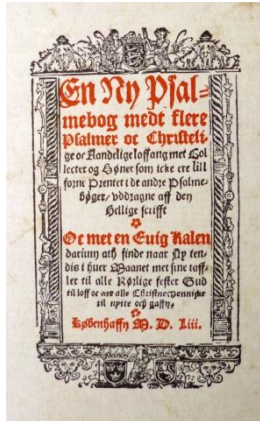 En Ny Psal=
mebog medt flere
Psalmer oc Christeli-
ge oc Aandelige loffang met Col
lecter og Bøner som icke ere till
forne Prentet i de andre Psalme-
bøger/ vddragne aff den
Hellige scrifft
Oc met en Euig Kalen
darium ath finde naar Ny ten-
dis i huer Maanet met sine taff-
ler til alle Rørlige fester Gud
til loff oc ære alle Christne
til nytte och gaffn.
Københaffn M. D. Liii.